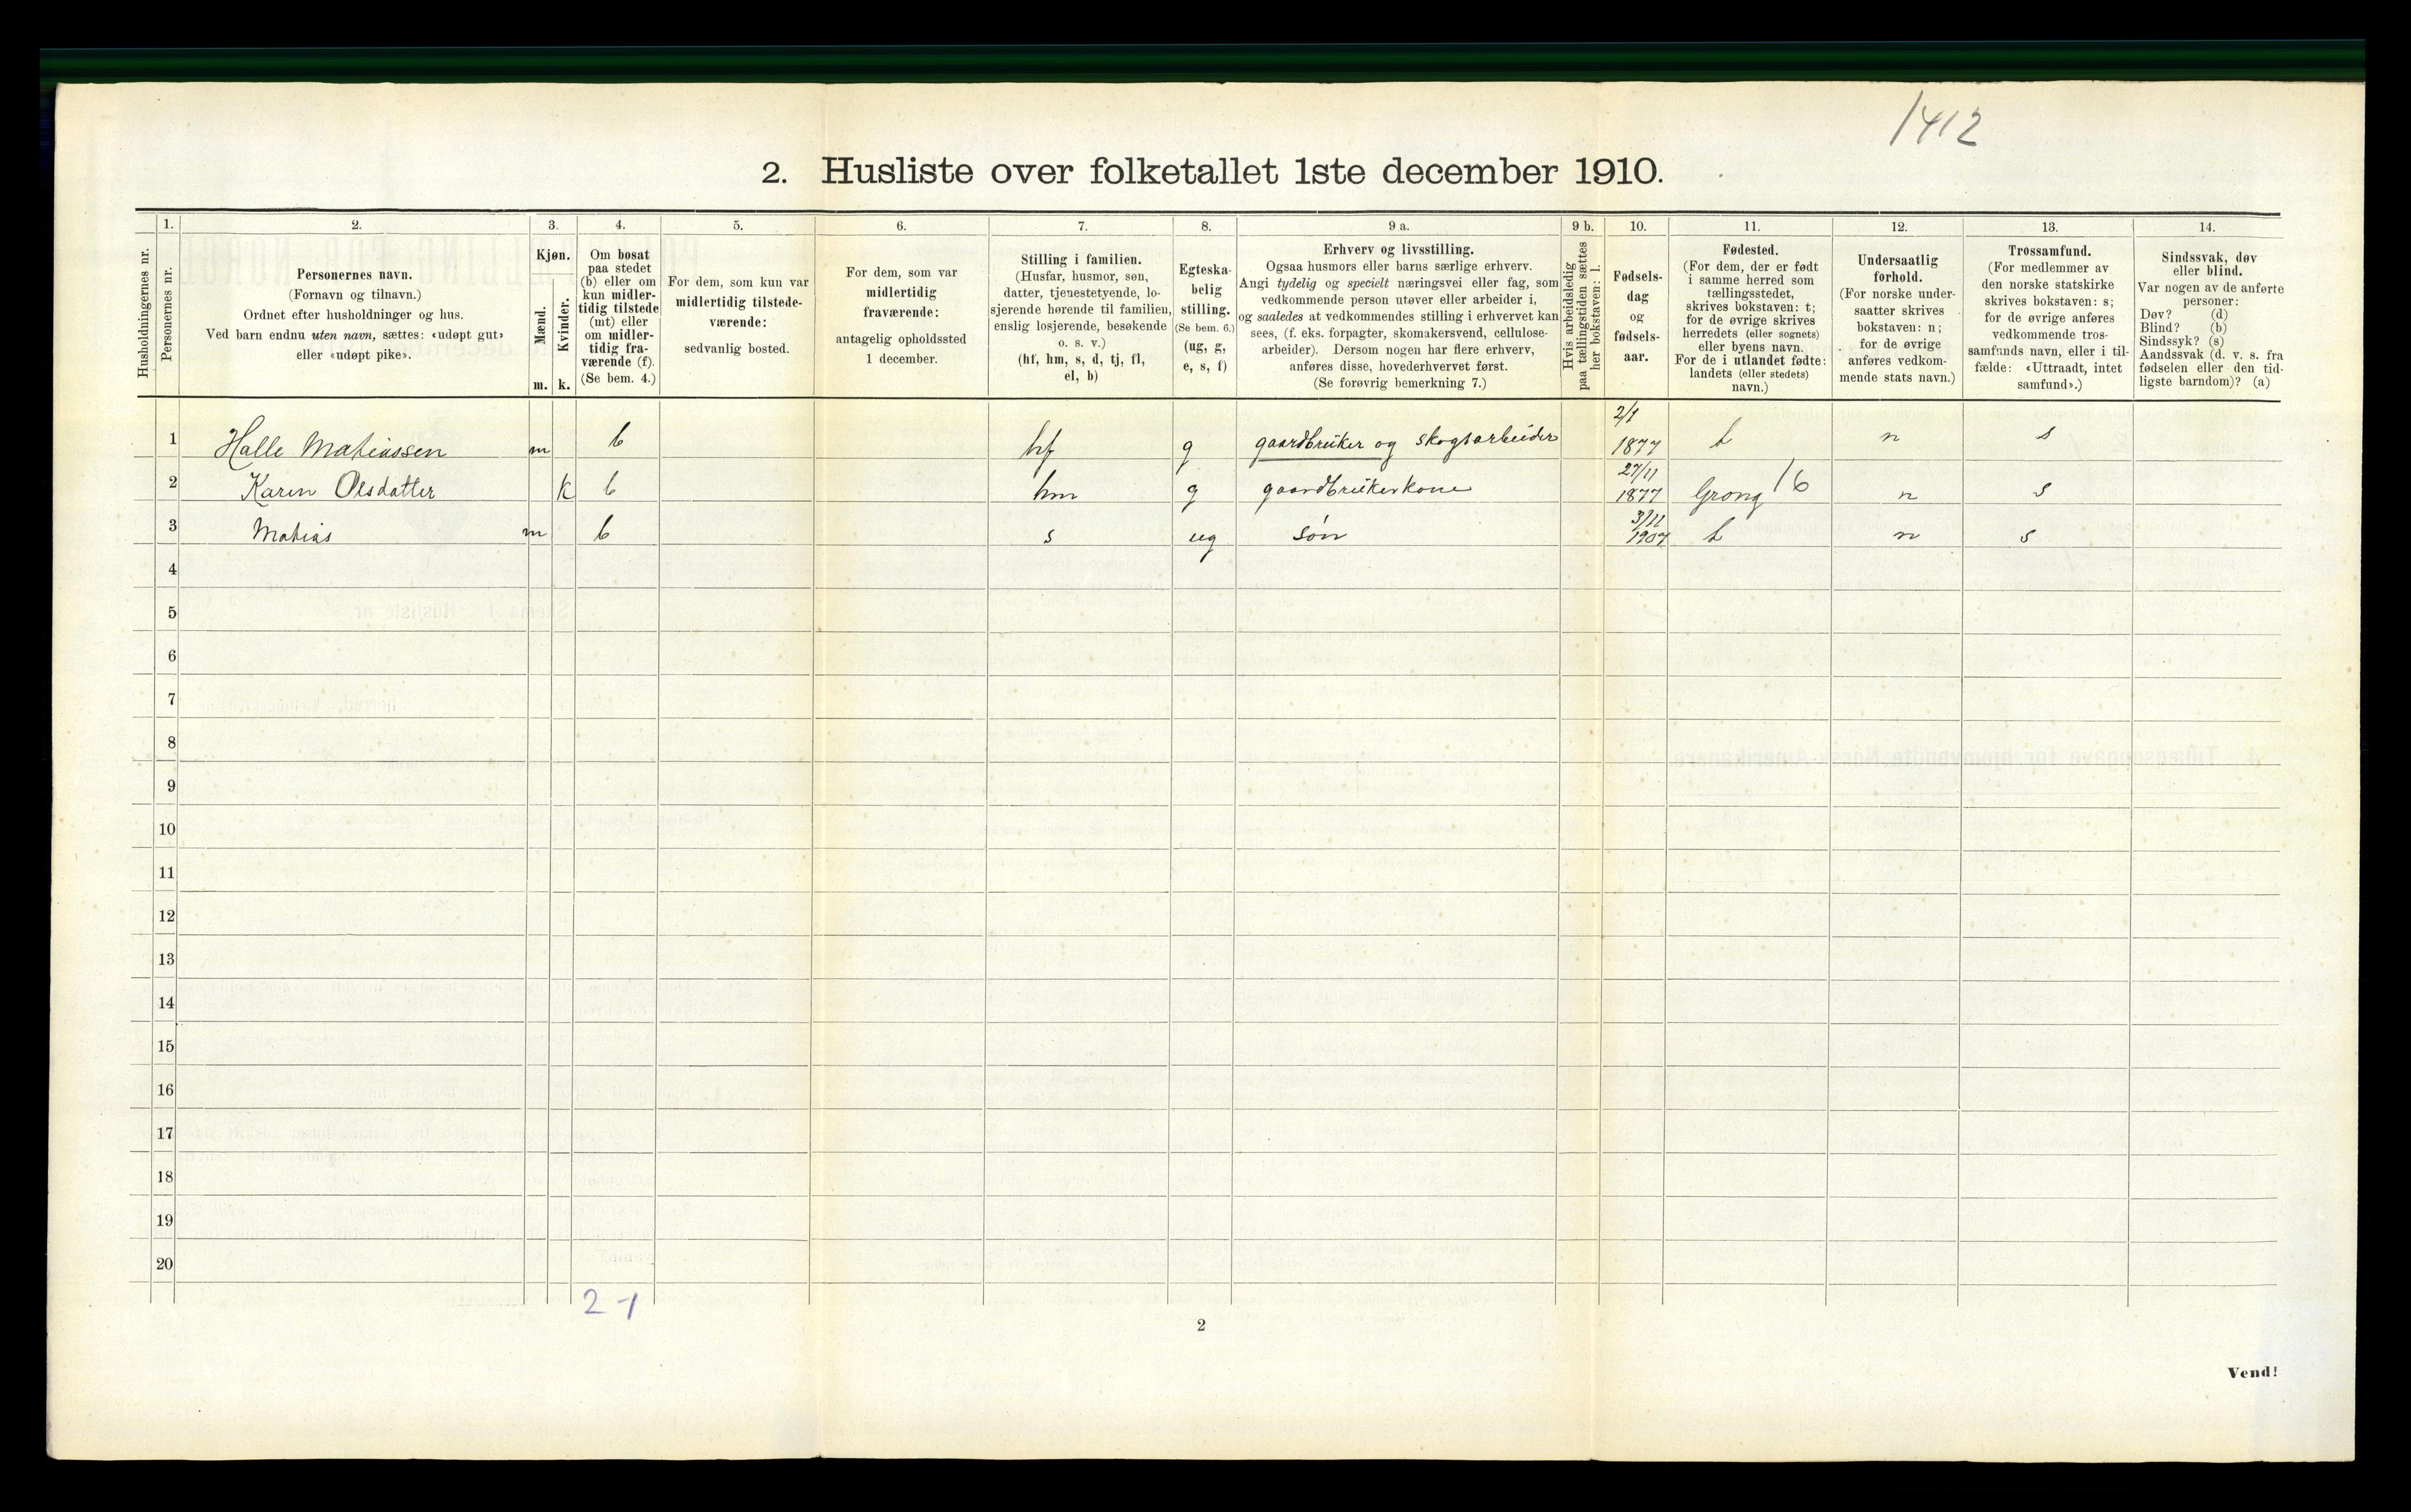 1412
2. Husliste over folketallet 1ste december 1910.
Husholdningernes nr.
1.
Personernes nr.
2.
Personernes navn.
(Fornavn og tilnavn.)
Ordnet efter husholdninger og hus.
Ved barn endnu uten navn, sættes: «udøpt gut»
eller «udøpt pike».
3.
Kjøn.
Mænd.
Kvinder.
m. k.
4.
Om bosat
paa stedet
(b) eller om
kun midler-
tidig tilstede
(mt) eller
om midler-
tidig fra-
værende (f).
(Se bem. 4.)
5.
For dem, som kun var
midlertidig tilstede-
værende:
sedvanlig bosted.
6.
For dem, som var
midlertidig
fraværende:
antagelig opholdssted
1 december.
7.
Stilling i familien.
(Husfar, husmor, søn,
datter, tjenestetyende, lo-
sjerende hørende til familien,
enslig losjerende, besøkende
o. s. v.)
(hf, hm, s, d, tj, fl,
el, b)
8.
Egteska-
belig
stilling.
(Se bem. 6.)
(ug, g,
e, s, f)
9 a.
Erhverv og livsstilling.
Ogsaa husmors eller barns særlige erhverv.
Angi tydelig og specielt næringsvei eller fag, som
vedkommende person utøver eller arbeider i,
og saaledes at vedkommendes stilling i erhvervet kan
sees, (f. eks. forpagter, skomakersvend, cellulose-
arbeider). Dersom nogen har flere erhverv,
anføres disse, hovederhvervet først.
(Se forøvrig bemerkning 7.)
9 b.
Hvis arbeidsledig
paa tællingstiden sættes
her bokstaven: l.
10.
Fødsels-
dag
og
fødsels-
aar.
11.
Fødested.
(For dem, der er født
i samme herred som
tællingsstedet,
skrives bokstaven: t;
for de øvrige skrives
herredets (eller sognets)
eller byens navn.
For de i utlandet fødte:
landets (eller stedets)
navn.)
12.
Undersaatlig
forhold.
(For norske under-
saatter skrives
bokstaven: n;
for de øvrige
anføres vedkom-
mende stats navn.)
13.
Trossamfund.
(For medlemmer av
den norske statskirke
skrives bokstaven: s;
for de øvrige anføres
vedkommende tros-
samfunds navn, eller i til-
fælde: «Uttraadt, intet
samfund».)
14.
Sindssvak, døv
eller blind.
Var nogen av de anførte
personer:
Døv? (d)
Blind? (b)
Sindssyk? (s)
Aandssvak (d. v. s. fra
fødselen eller den tid-
ligste barndom)? (a)
1 Halle Matiassen m b hf g gaardbruker og skogsarbeider 2/1 1877 t n s
2 Karen Olsdatter k b hm g gaardbrukerkone 27/11 1877 Grong 16 n s
3 Matias m b s ug søn 3/11 1907 t n s
4
5
6
7
8
9
10
11
12
13
14
15
16
17
18
19
20
2-1
2
Vend!